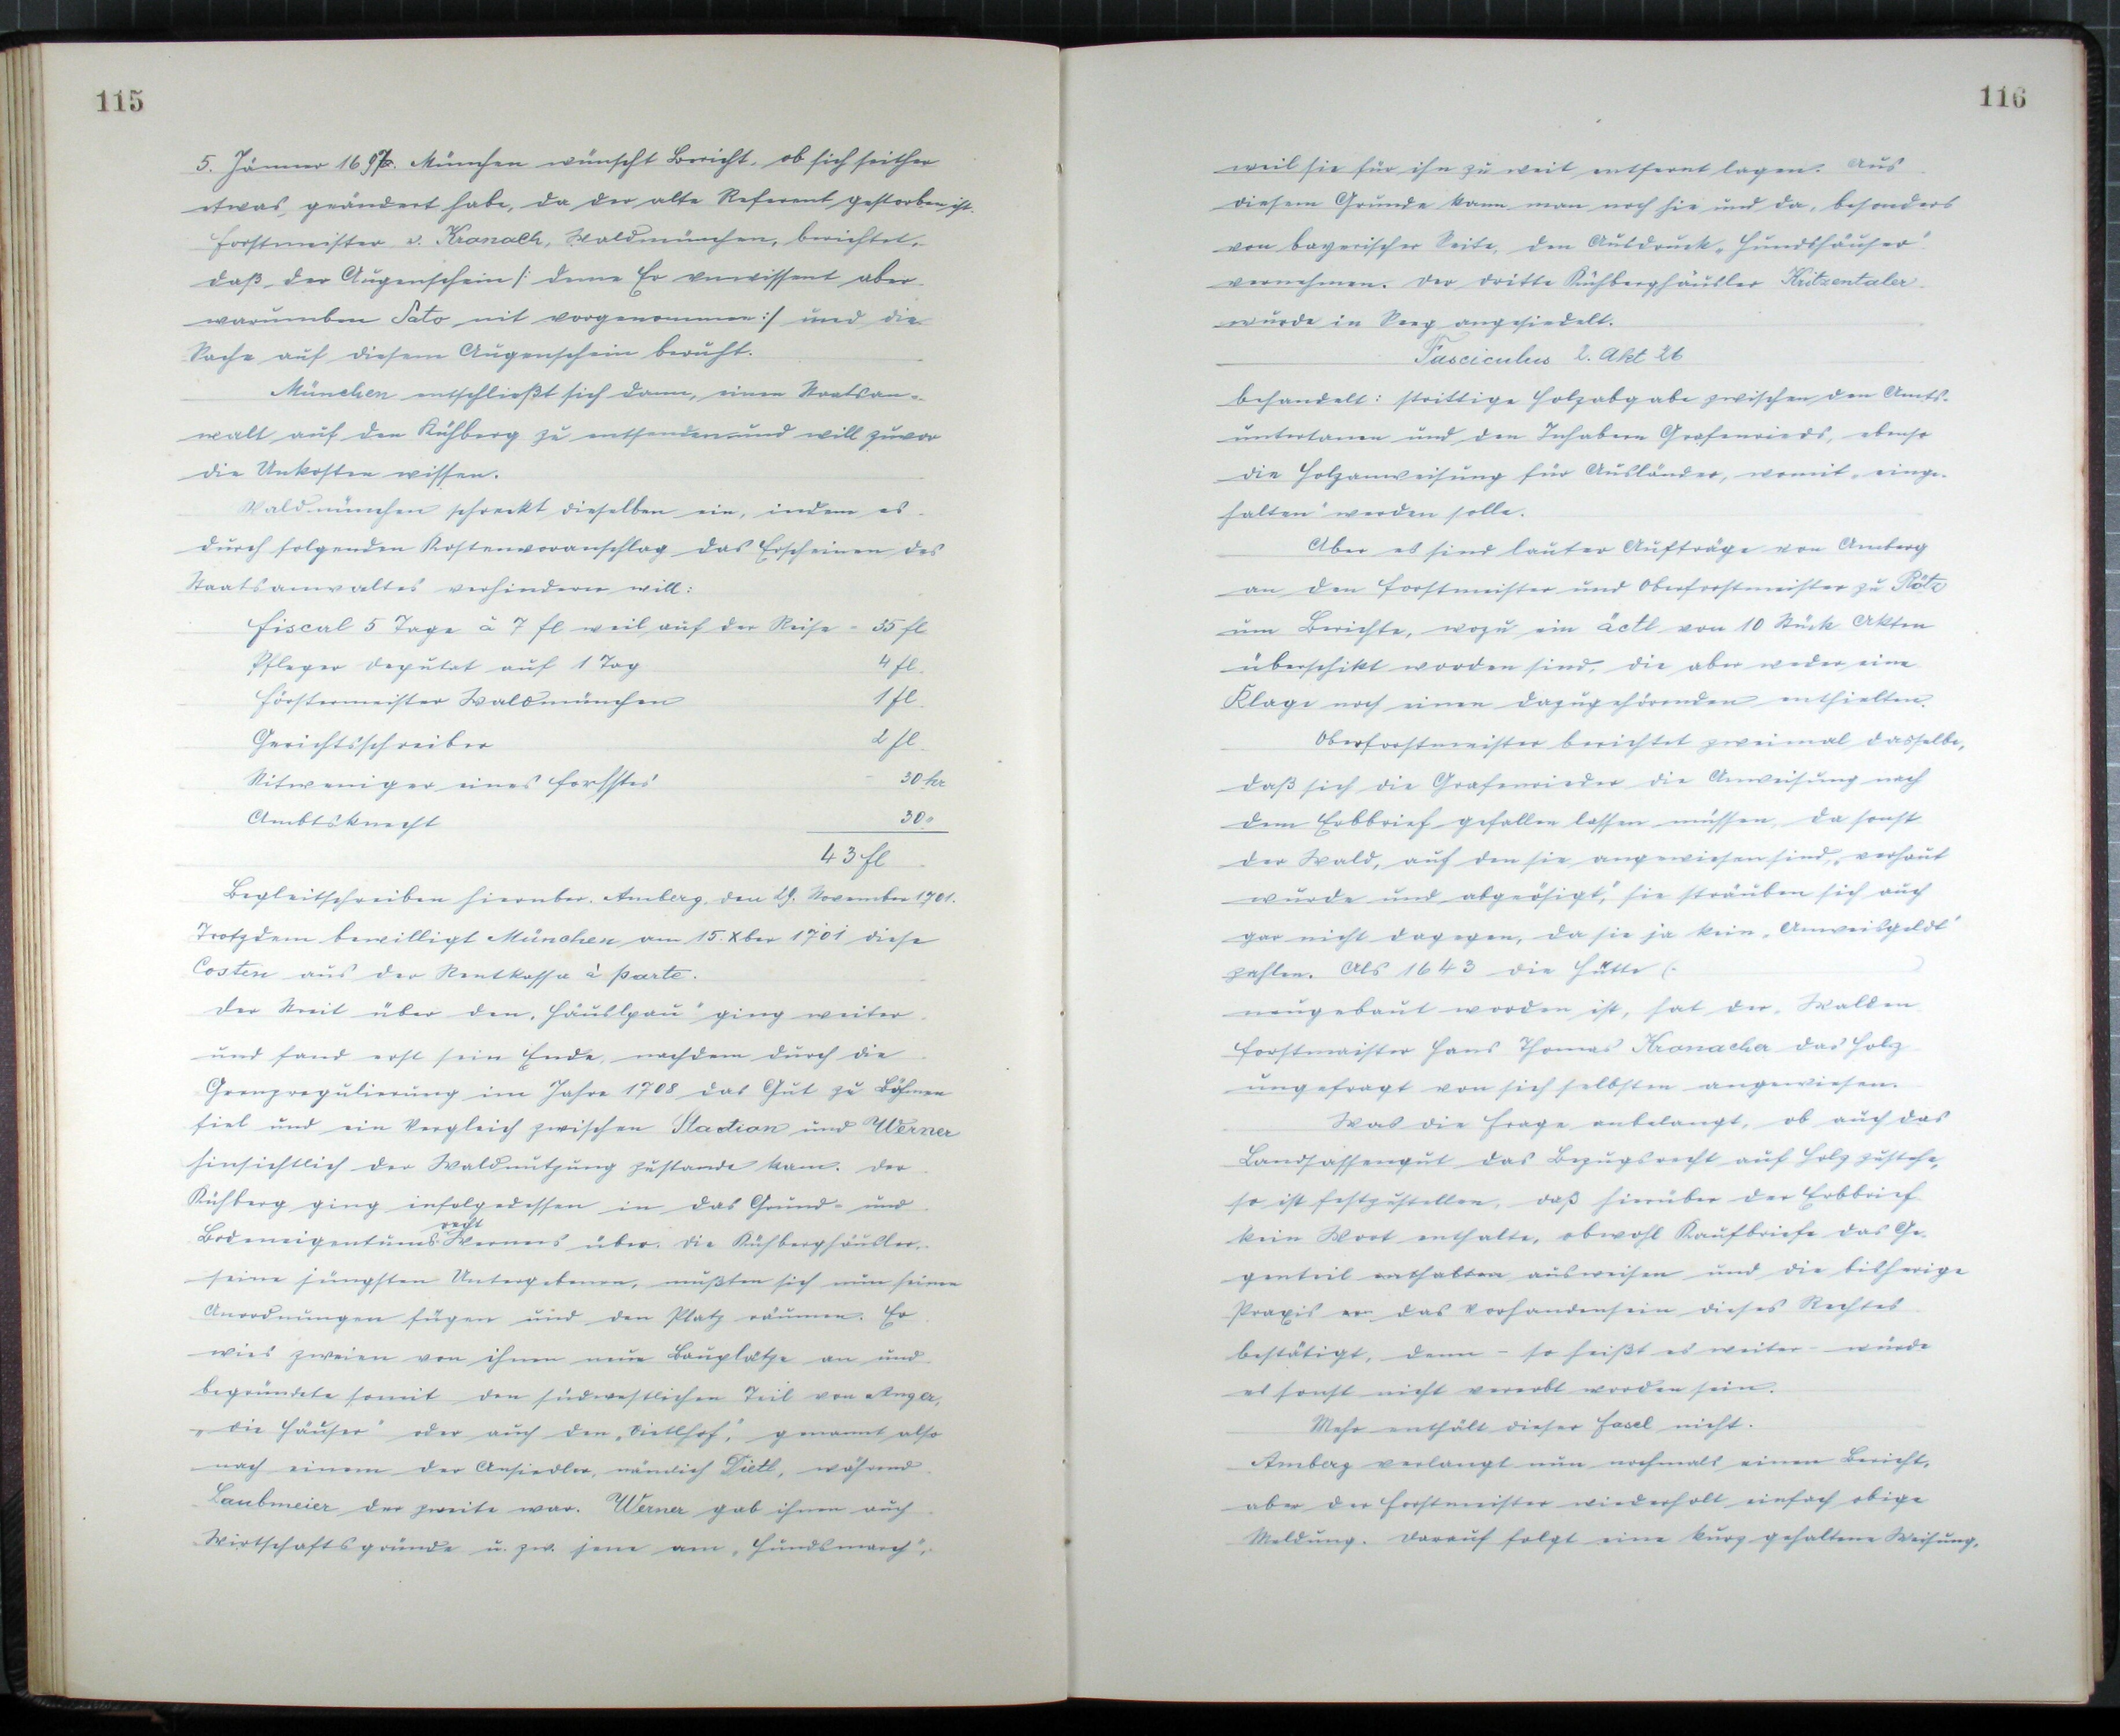 115
5. Jänner 1697. München wünscht Bericht, ob sich seither
etwas geändert habe, da der alte Referent gestorben ist.
Forstmeister v. Kronach, Waldmünchen, berichtet,
daß der Augenschein /: deme Er unwissent aber
warumben Dato nit vorgenommen :/ und die
Sache auf diesem Augenschein beruht.
München entschließt sich dann, einen Staatsan-
walt auf den Kühberg zu entsenden und will zuvor
die Unkosten wissen.
Waldmünchen schreckt dieselben ein, indem es
durch folgenden Kostenvoranschlag das Erscheinen des
Staatsanwaltes verhindern will:
Fiscal 5 Tage à 7 fl weil auf der Reise = 35 fl
Pfleger deputat auf 1 Tag 4 fl.
Förstermeister Waldmünchen 1 fl.
Gerichtsschreiber 2 fl.
Nitweniger eines 30 kr
Ambtsknecht 30 "
43 fl
Begleitschreiben hierüber. Amberg, den 29. November 1701.
Trotzdem bewilligt München am 15. Xber 1701 diese
Costen aus der Rentkassa à parte.
Der Streit über den „Häuslpau" ging weiter
und fand erst sein Ende, nachdem durch die
Grenzregulierung im Jahre 1708 das Gut zu Böhmen
fiel und ein Vergleich zwischen Stadion und Werner
hinsichtlich der Waldnutzung zustande kam. Der
Kühberg ging infolgedessen in das Grund- und
Bodeneigentumsrecht Werners über. Die Kühberghäusler,
seine jüngsten Untergebenen, mußten sich nun seinen
Anordnungen fügen und den Platz räumen. Er
wies zweien von ihnen neue Bauplätze an und
begründete somit den südwestlichen Teil von Anger,
„die Häuser" oder auch den „Dietlhof", genannt also
nach einem der Ansiedler, nämlich Dietl, während
Laubmeier der zweite war. Werner gab ihnen auch
Wirtschaftsgründe u. zw. jene am „Hundsmarch",
116
weil sie für ihn zu weit entfernt lagen. Aus
diesem Grunde kann man noch hie und da, besonders
von bayerischer Seite, den Ausdruck „Hundshäuser"
vernehmen. Der dritte Kühberghäusler Kritzentaler
wurde in Seeg angesiedelt.
Fasciculus 2. Akt 26
behandelt: strittige Holzabgabe zwischen den Amts-
untertanen und den Inhabern Grafenrieds, ebenso
die Holzanweisung für Ausländer, womit „einge-
halten" werden solle.
Aber es sind lauter Aufträge von Amberg
an den Forstmeister und Oberforstmeister zu Rötz
um Berichte, wozu ein äctl von 10 Stück Akten
überschikt worden sind, die aber weder eine
Klage noch einen dazugehörenden enthielten.
Oberforstmeister berichtet zweimal dasselbe,
daß sich die Grafenrieder die Anweisung nach
dem Erbbrief gefallen lassen müssen, da sonst
der Wald, auf den sie angewiesen sind, „verhaut
wurde und abgeösigt", sie sträuben sich auch
gar nicht dagegen, da sie ja kein „Anweisgeldt"
zahlen. Als 1643 die Hütte ( )
neugebaut worden ist, hat der Walden
forstmaister Hans Thomas Kronacher das Holz
ungefragt von sich selbsten angewiesen.
Was die Frage anbelangt, ob auch das
Landsassengut das Bezugsrecht auf Holz zustehe,
so ist festzustellen, daß hierüber der Erbbrief
kein Wort enthalte, obwohl Kaufbriefe das Ge-
genteil enthalten ausweisen und die bisherige
Praxis das Vorhandensein dieses Rechtes
bestätigt, denn - so heißt es weiter - würde
es sonst nicht vererbt worden sein.
Mehr enthält dieser Fascl nicht.
Amberg verlangt nun nochmals einen Bericht,
aber der Forstmeister wiederholt einfach obige
Meldung. Darauf folgt eine kurz gehaltene Weisung,